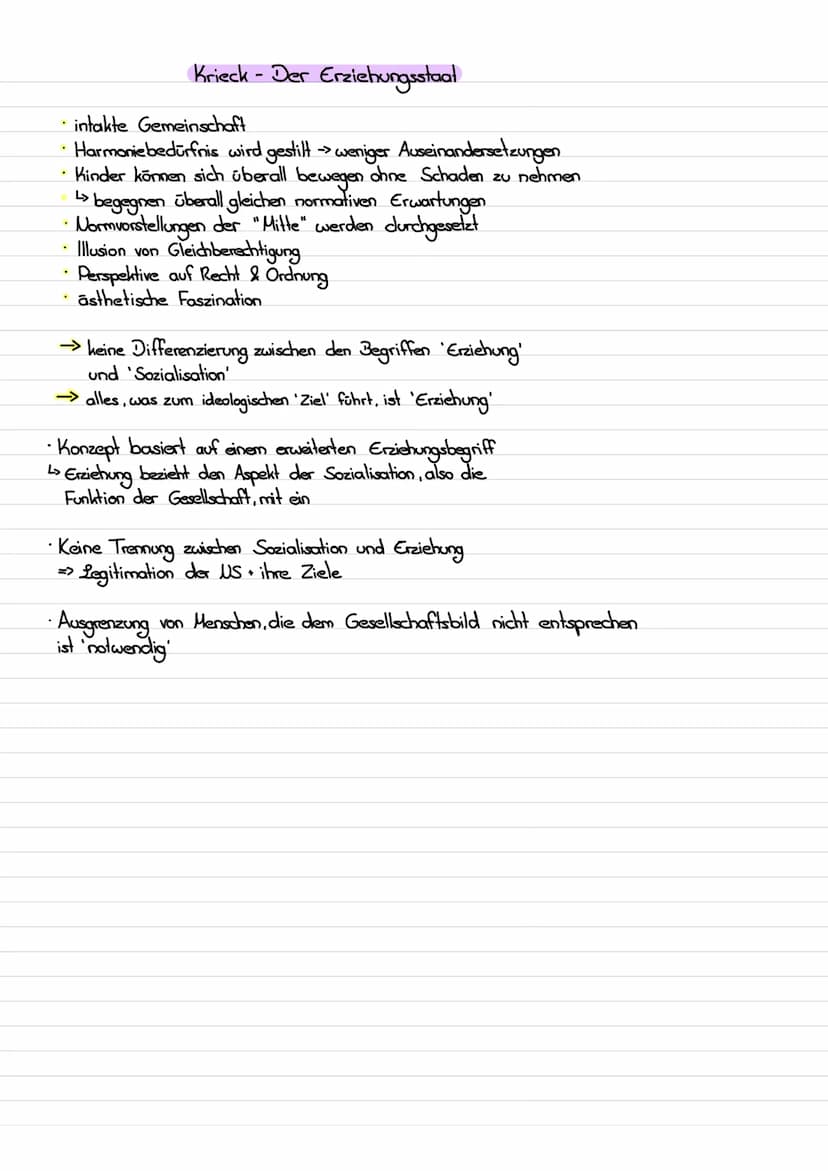 Krieck - Der Erziehungsstaat
· intakte Gemeinschaft
· Harmoniebedürfnis wird gestillt → weniger Auseinandersetzungen
· Kinder können sich überall bewegen ohne Schaden zu nehmen
· ↳ begegnen überall gleichen normativen Erwartungen
· Normvorstellungen der "Mitte" werden durchgesetzt
· Illusion von Gleichberechtigung
· Perspektive auf Recht & Ordnung
· ästhetische Faszination
→ keine Differenzierung zwischen den Begriffen 'Erziehung'
und 'Sozialisation'
→ alles, was zum ideologischen 'Ziel' führt, ist 'Erziehung'
· Konzept basiert auf einem erweiterten Erziehungsbegriff
↳ Erziehung bezieht den Aspekt der Sozialisation, also die
Funktion der Gesellschaft, mit ein
· Keine Trennung zwischen Sozialisation und Erziehung
=> Legitimation der NS + ihre Ziele
· Ausgrenzung von Menschen, die dem Gesellschaftsbild nicht entsprechen
ist 'notwendig'